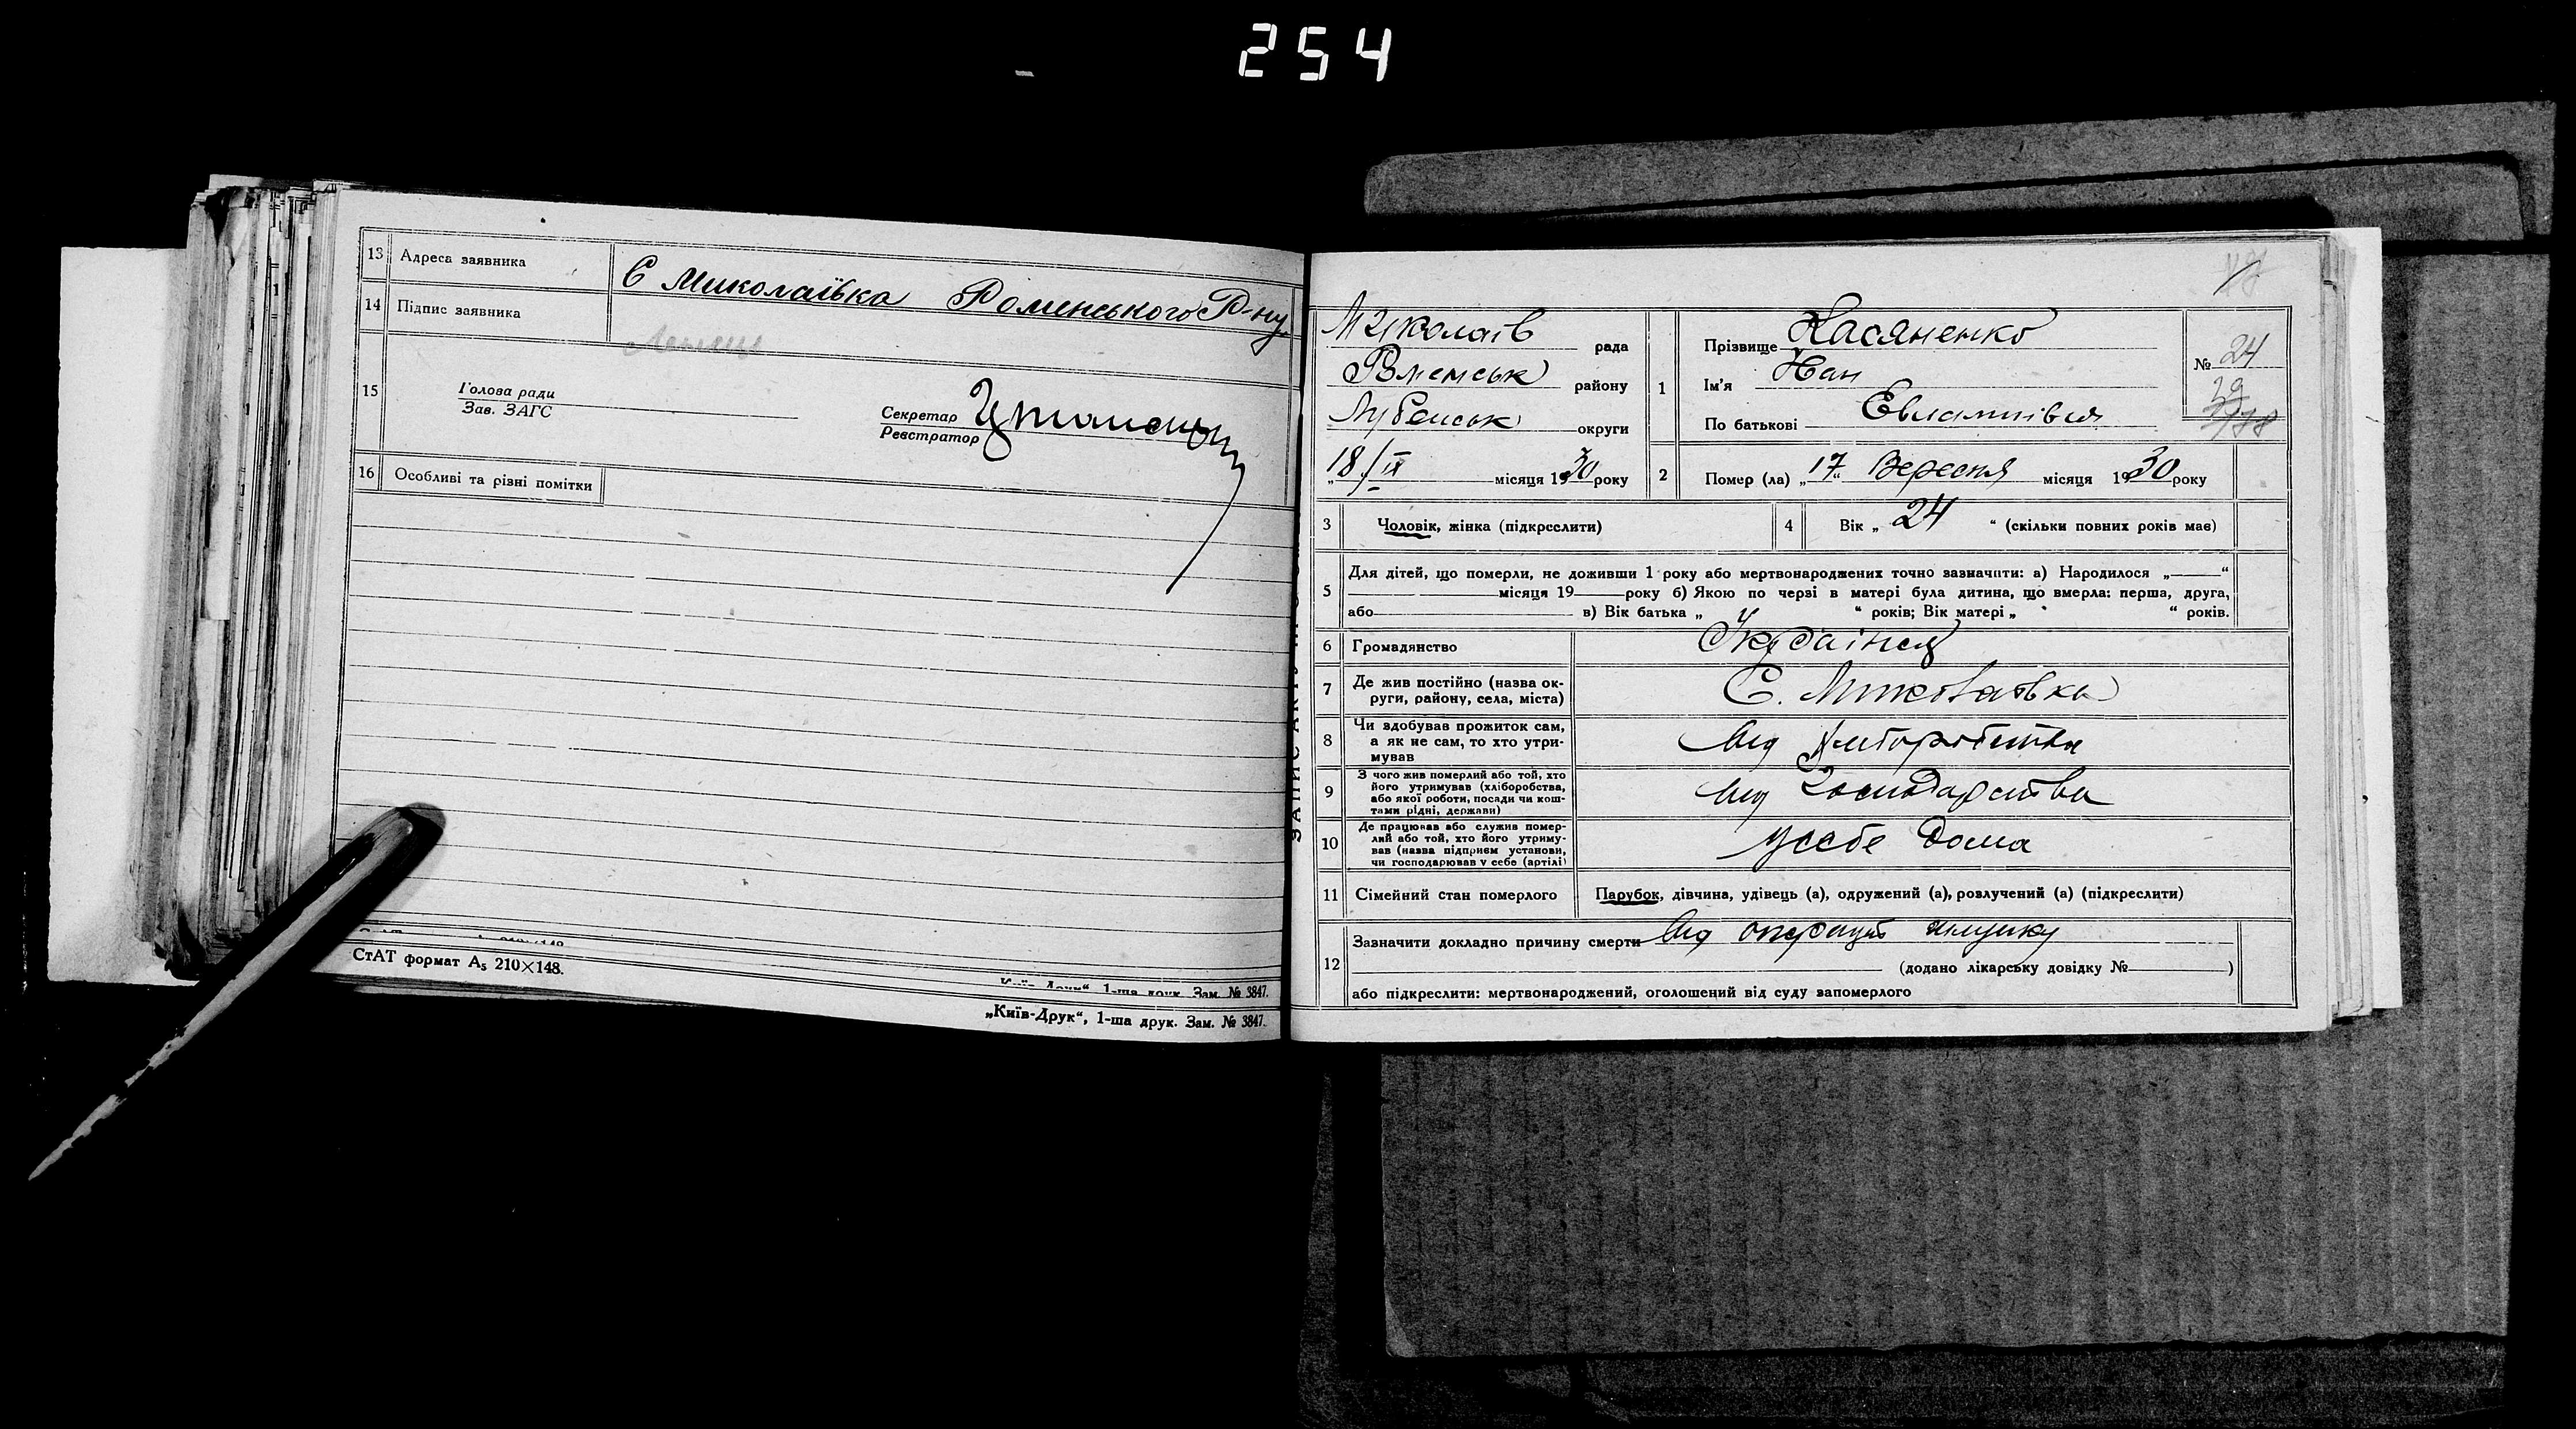 254
13 Адреса заявника С Миколаївка Роменського Р-ну
14 Підпис заявника
15 Голова ради
Зав. ЗАГС
Секретар
Реєстратор
16 Особливі та різні помітки
СтАТ формат А₅ 210×148.
1-ша друк. Зам. № 3847.
„Київ-Друк“, 1-ша друк. Зам. № 3847.
Миколаїв рада
Роменськ району
Лубенськ округи
„18/ІХ місяця 1930 року
1 Прізвище Касяненко
Ім'я Іван
По батькові Евлампівич
№ 24
39
2 Помер (ла) „17“ Вересня місяця 1930 року
3 Чоловік, жінка (підкреслити)
4 Вік „ 24 “ (скільки повних років має)
5 Для дітей, що померли, не доживши 1 року або мертвонароджених точно зазначити: а) Народилося „——“
місяця 19——року б) Якою по черзі в матері була дитина, що вмерла: перша, друга,
або в) Вік батька „ “ років; Вік матері „ “ років.
6 Громадянство Українся
7 Де жив постійно (назва ок-
руги, району, села, міста) С. Миколаївка
8 Чи здобував прожиток сам,
а як не сам, то хто утри-
мував Від хліборобства
9 З чого жив померлий або той, хто
його утримував (хліборобства,
або якої роботи, посади чи кош-
тами рідні, держави) Від Господарства
10 Де працював або служив помер-
лий або той, хто його утриму-
вав (назва підприєм установи,
чи господарював у себе (артілі) усебе дома
11 Сімейний стан померлого Парубок, дівчина, удівець (а), одружений (а), розлучений (а) (підкреслити)
12 Зазначити докладно причину смерти Від операції
(додано лікарську довідку №——)
або підкреслити: мертвонароджений, оголошений від суду запомерлого